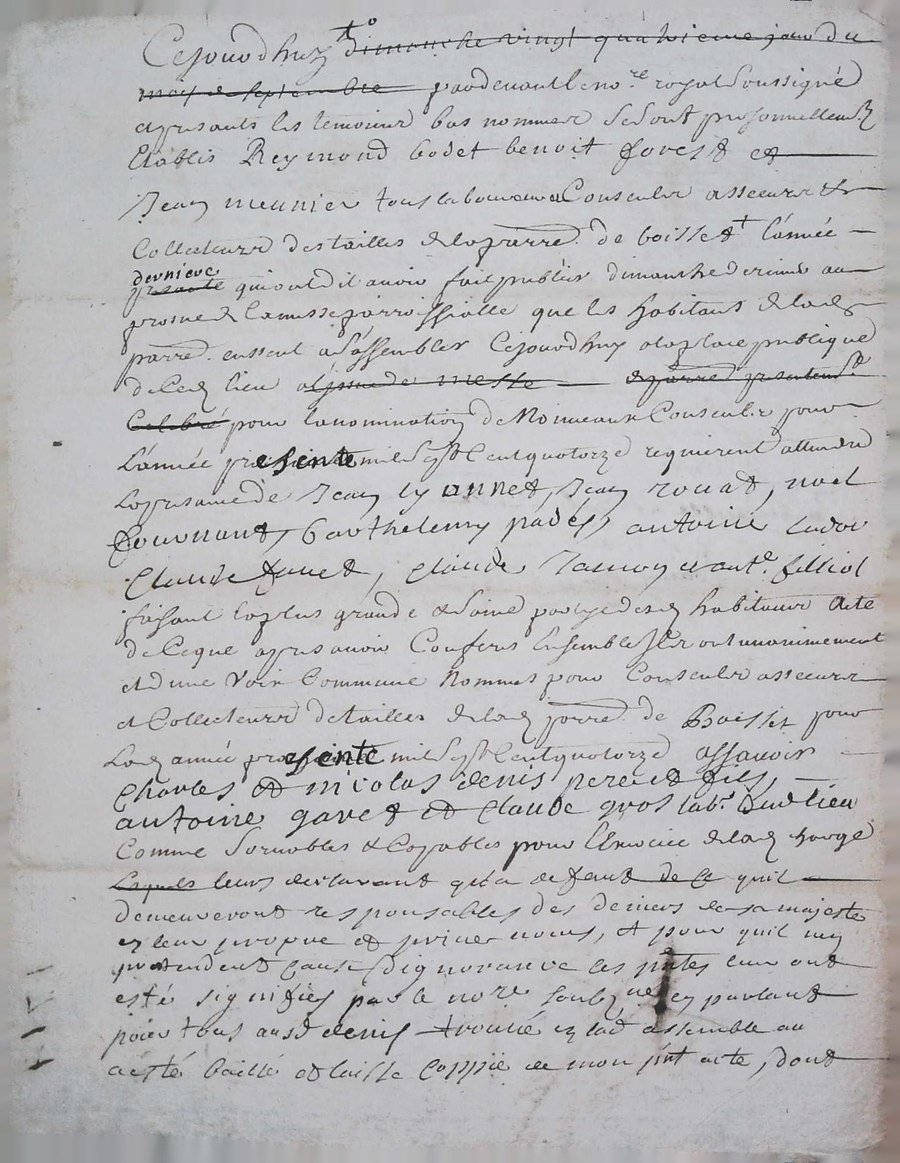 Cejourdhuy dimanche vingt quatrieme jour du
moy de septembre pardevant le nore royal soussigné
et presants les temoins bas nommes se sont personnellemt
Etablis Reymond bodet benoit forest et
Jean meunier tous laboureurs Consculz asseeurs et
Collecteurs des tailles de la parre. de boisset lannée
derniere presante qui ont dit avoir fait publier dimanche dernier au
prosne de la messe parroissialle que les habitants de lad
parre. eussent a sassembler Cejourdhuy a la place publique
de Ced lieu a lissue de messe
Celebré pour la nomination de Nouveaux Consculz pour
Lannée presente mil sept Cent quatorze requierent attendu
La presance de Jean lyonnet, Jean rouat, noel
Barthelemy antoine
Claude claude et ant. filliol
faisant la plus grande et saine partye desd habitans acte
de Ceque apres avoir Conferé Ensemblement ont unanimement
et dune voix Commune Nommés pour Consculz asseeurs
et Collecteurs de tailles de lad parre. de Boisset pour
Lad année presente mil sept Cent quatorze assavoir
Charles et nicolas denis pere et fils,
antoine garet et claude gros labrs dud lieu
Comme Solvables et Capables pour Lexercice de lad charge
Lesquels leurs declarant qua defaut de ce quil
demeureront responsables des deniers de sa majesté
en leur propre et privé noms, et pour quil nen
pretendent cause dignorance les pntes leur ont
esté signifiés par le nore soubzne en parlant
pour tous aud denis trouvé en lad assemble au
a esté baillé et laissé coppie de mon pnt acte, dont